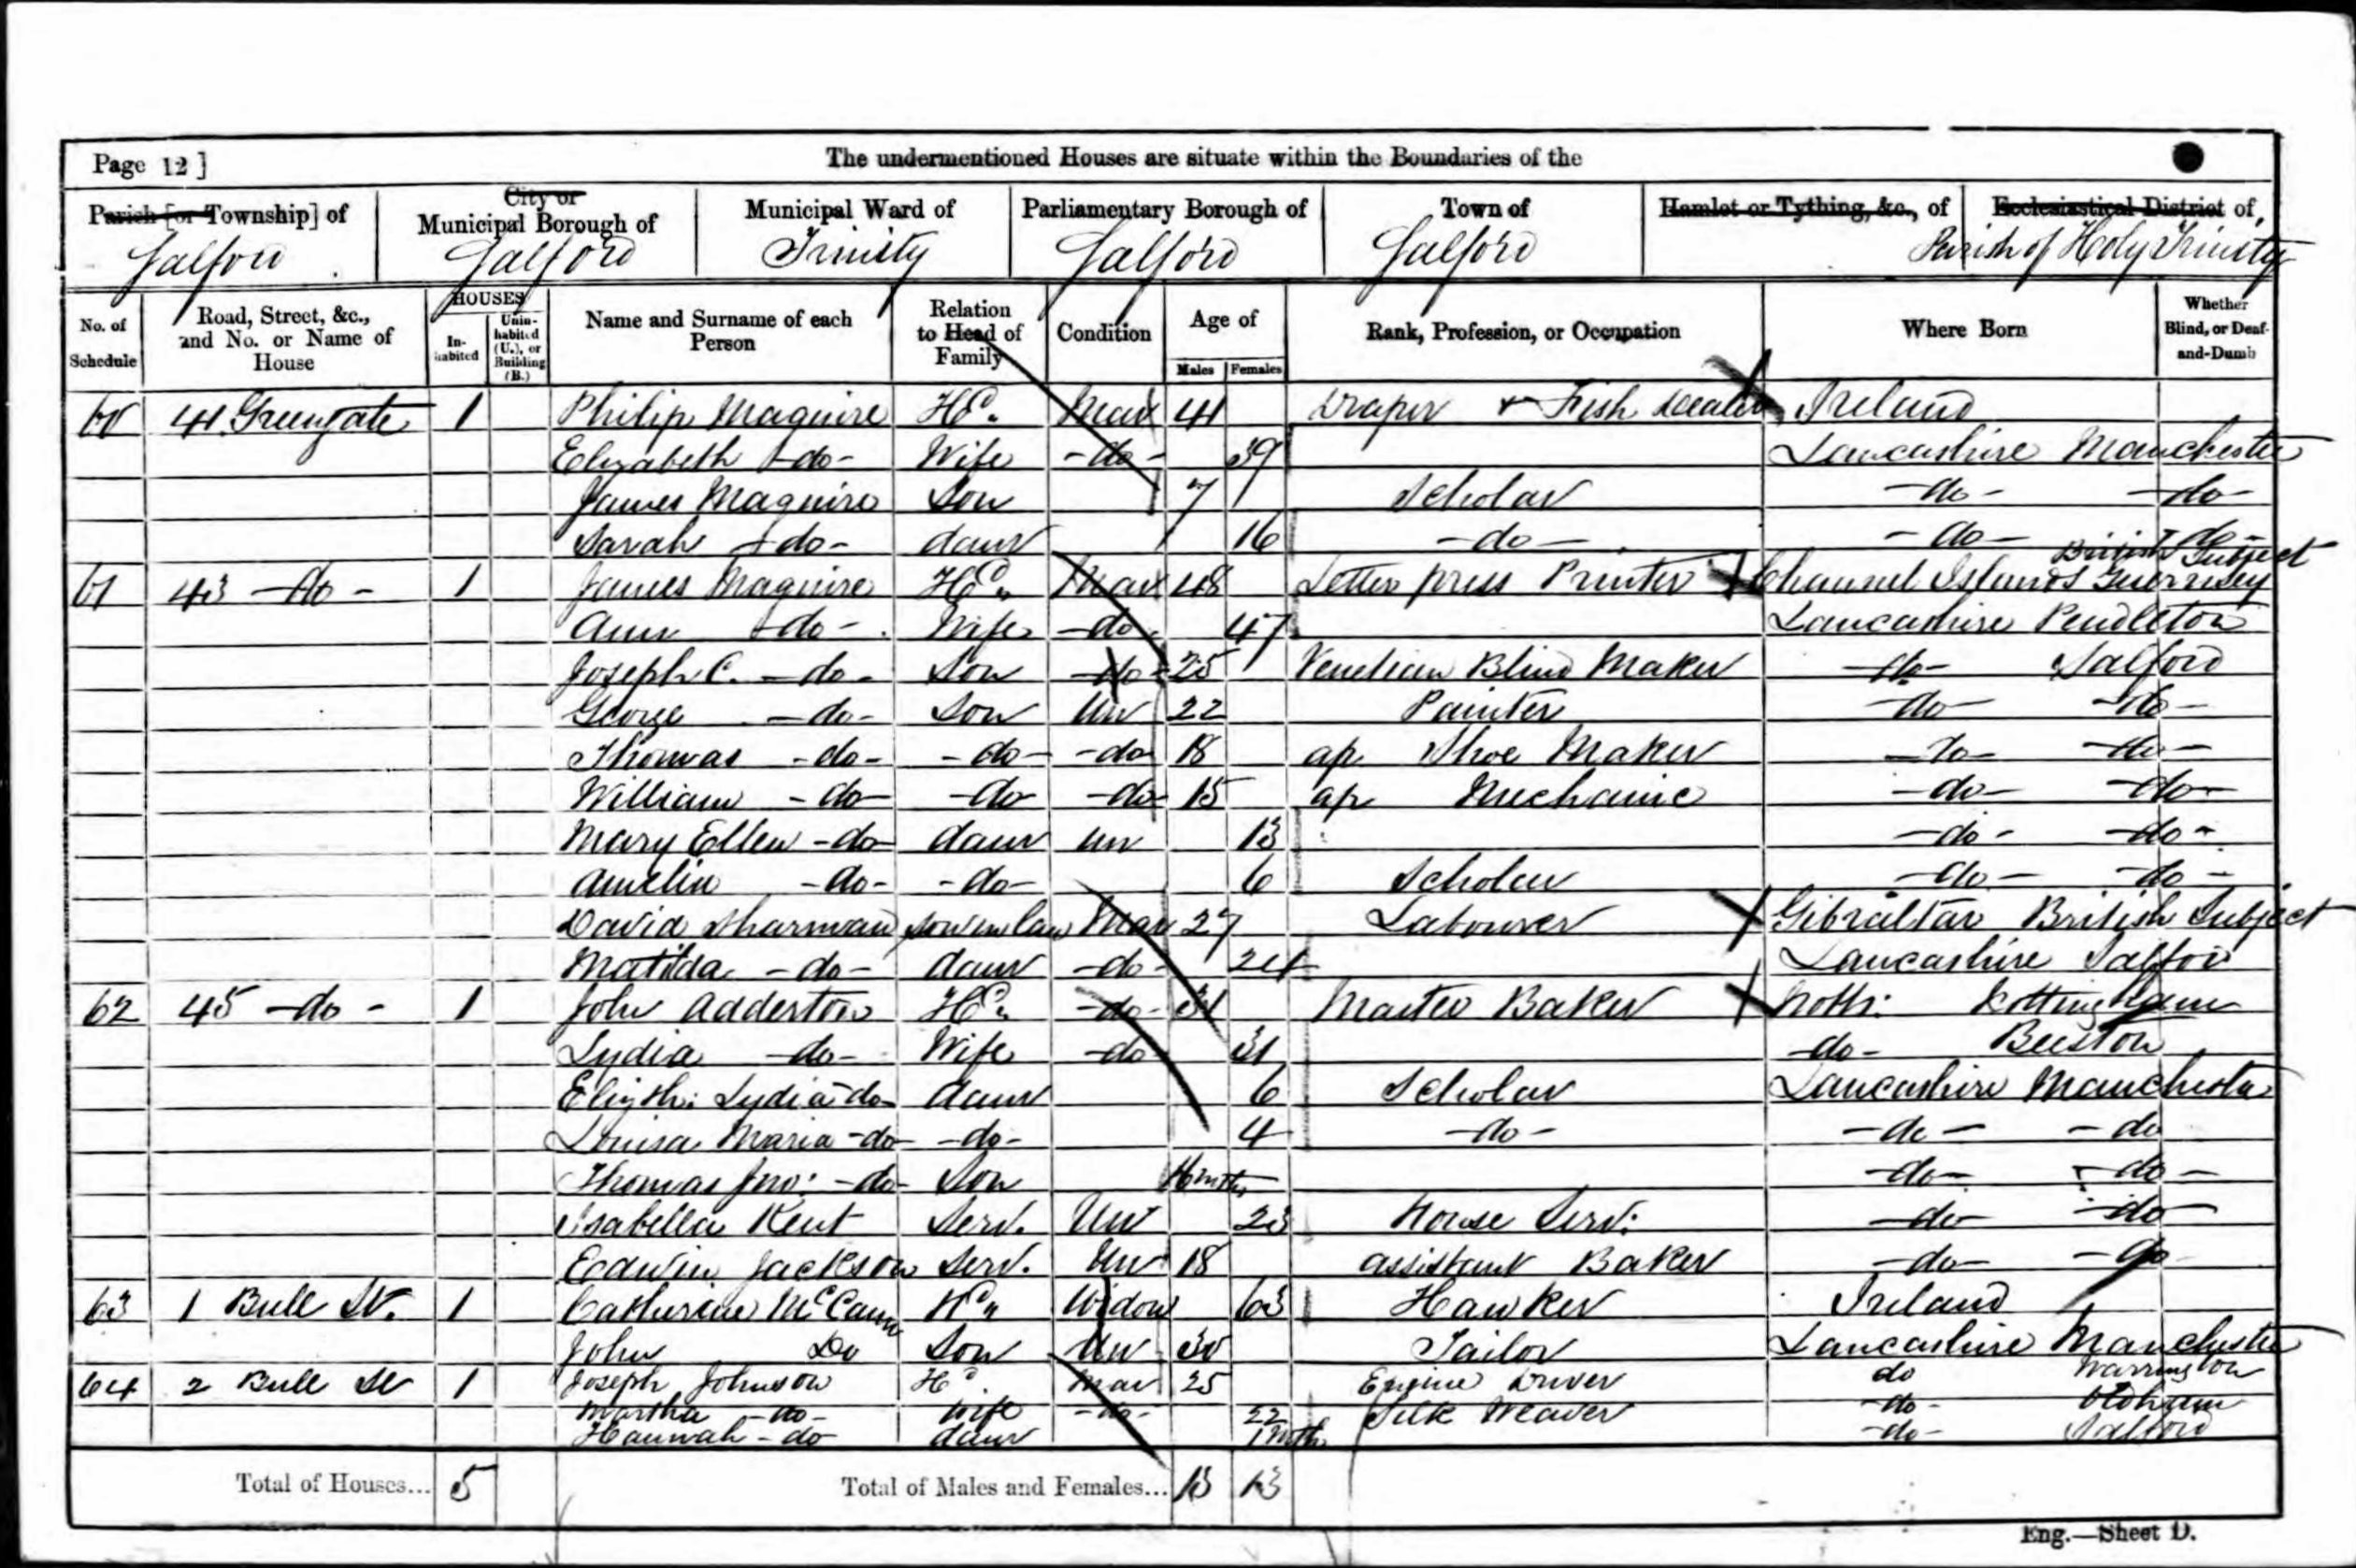 Page 12 ]
The undermentioned Houses are situate within the Boundaries of the
Parish [or Township] of
City or Municipal Borough of
Municipal Ward of
Parliamentary Borough of
Town of
Hamlet or Tything, &c., of
Ecclesiastical District of,
Salford Salford Trinity Salford Salford Parish of Holy Trinity
No. of Schedule
Road, Street, &c., and No. or Name of House
HOUSES
In-habited
Unin-habited (U.), or Building (B.)
Name and Surname of each Person
Relation to Head of Family
Condition
Age of
Males Females
Rank, Profession, or Occupation
Where Born
Whether Blind, or Deaf-and-Dumb
60 41 Greengate 1 Philip Maguire Hd. Mar 41 Draper & Fish Dealer Ireland
Elizabeth -do- Wife -do- 39 Lancashire Manchester
James Maguire Son 7 Scholar -do- -do-
Sarah -do- daur 16 -do- -do- -do-
British Subject
61 43 -do- 1 James Maguire Hd. Mar 48 Letter press Printer Channel Islands Guernsey
Ann -do- Wife -do- 47 Lancashire Pendleton
Joseph C. -do- Son -do- 25 Venetian Blind Maker -do- Salford
George -do- Son Un 22 Painter -do- -do-
Thomas -do- -do- -do- 18 ap. Shoe Maker -do- -do-
William -do- -do- -do- 15 ap Mechanic -do- -do-
Mary Ellen -do- daur un 13 -do- -do-
Amelia -do- -do- 6 Scholar -do- -do-
David Sharman son in law Mar 27 Labourer Gibraltar British Subject
Matilda -do- daur -do- Lancashire Salford
62 45 -do- 1 John Adderton Hd. -do- 31 Master Baker Notts: Nottingham
Lydia -do- Wife -do- 31 -do- Beeston
Elizth: Lydia -do- daur 6 Scholar Lancashire Manchester
Louisa Maria -do- -do- 4 -do- -do- -do
Thomas Jno: -do- Son -do- -do-
Isabella Kent Serv. Un 23 House Serv: -do- -do-
Edwin Jackson Serv. Un 18 assistant Baker -do- -do
63 1 Bull St. 1 Catherine McCann Hd. Widow 63 Hawker Ireland
John Do Son Un 30 Tailor Lancashire Manchester
64 2 Bull St 1 Joseph Johnson Hd. Mar 25 Engine Driver do Warrington
Martha -do- Wife -do- 22 Silk Weaver -do- Oldham
Hannah -do- daur 1 Mth -do- Salford
Total of Houses... 5 Total of Males and Females... 13 13
Eng.—Sheet D.